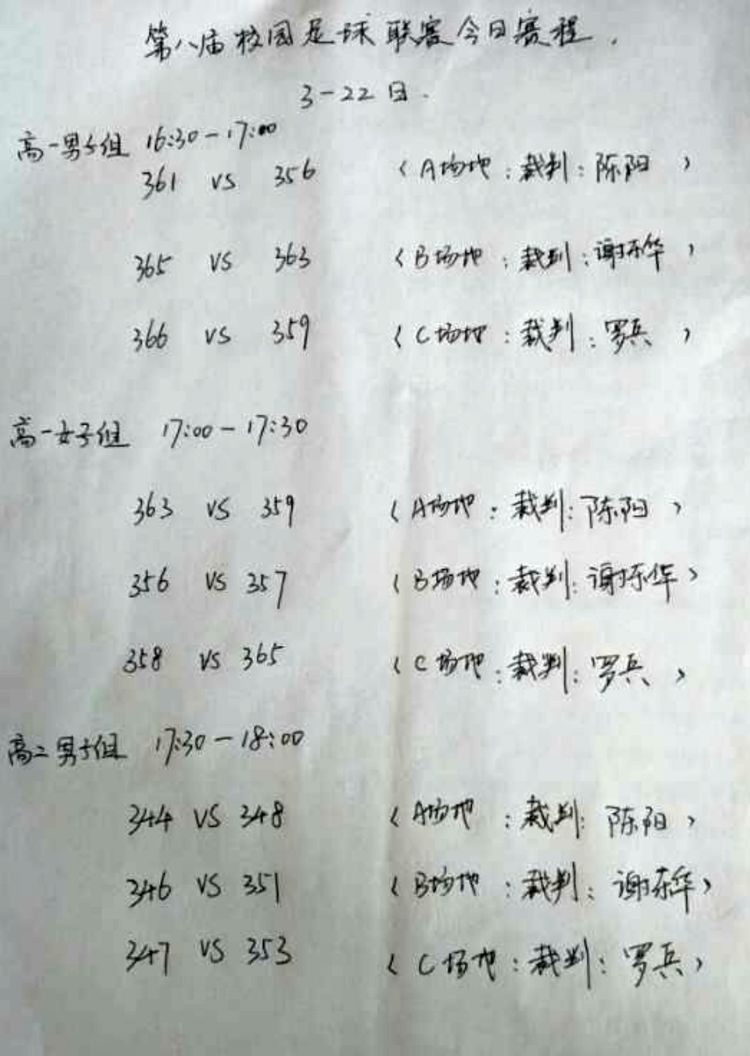 第八届校园足球联赛今日赛程.
3-22日.
高一男子组 16:30-17:00
361 VS 356 (A场地:裁判:陈阳)
365 VS 363 (B场地:裁判:谢东华)
366 VS 359 (C场地:裁判:罗兵)
高一女子组 17:00-17:30
363 VS 359 (A场地:裁判:陈阳)
356 VS 357 (B场地:裁判:谢东华)
358 VS 365 (C场地:裁判:罗兵)
高二男子组 17:30-18:00
344 VS 348 (A场地:裁判:陈阳)
346 VS 351 (B场地:裁判:谢东华)
347 VS 353 (C场地:裁判:罗兵)